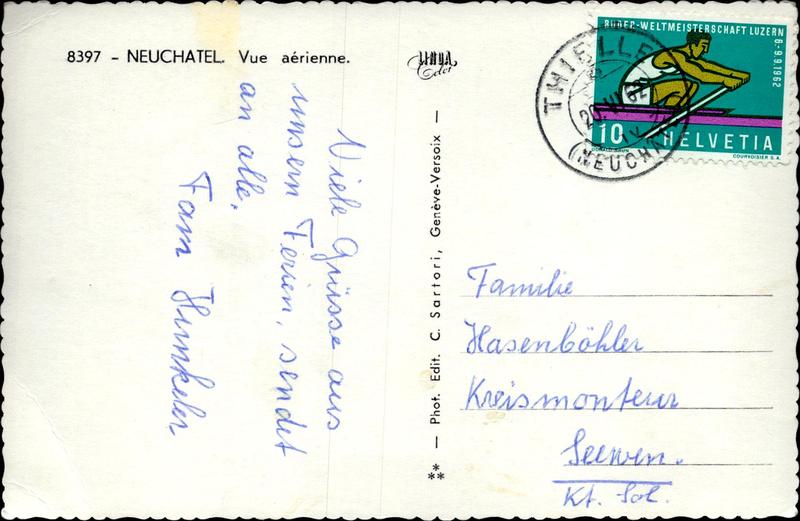 8397 - NEUCHATEL. Vue aérienne.
Viele Grüsse aus
unsern Ferien, sendet
an alle,
Fam Hunkeler
** — Phot. Edit. C. Sartori, Genève-Versoix —
RUDER-WELTMEISTERSCHAFT LUZERN
6-9.9.1962
10 HELVETIA
COURVOISIER S.A.
THIELLE
(NEUCHA
Familie
Hasenböhler
Kreismonteur
Seewen.
Kt. Sol.